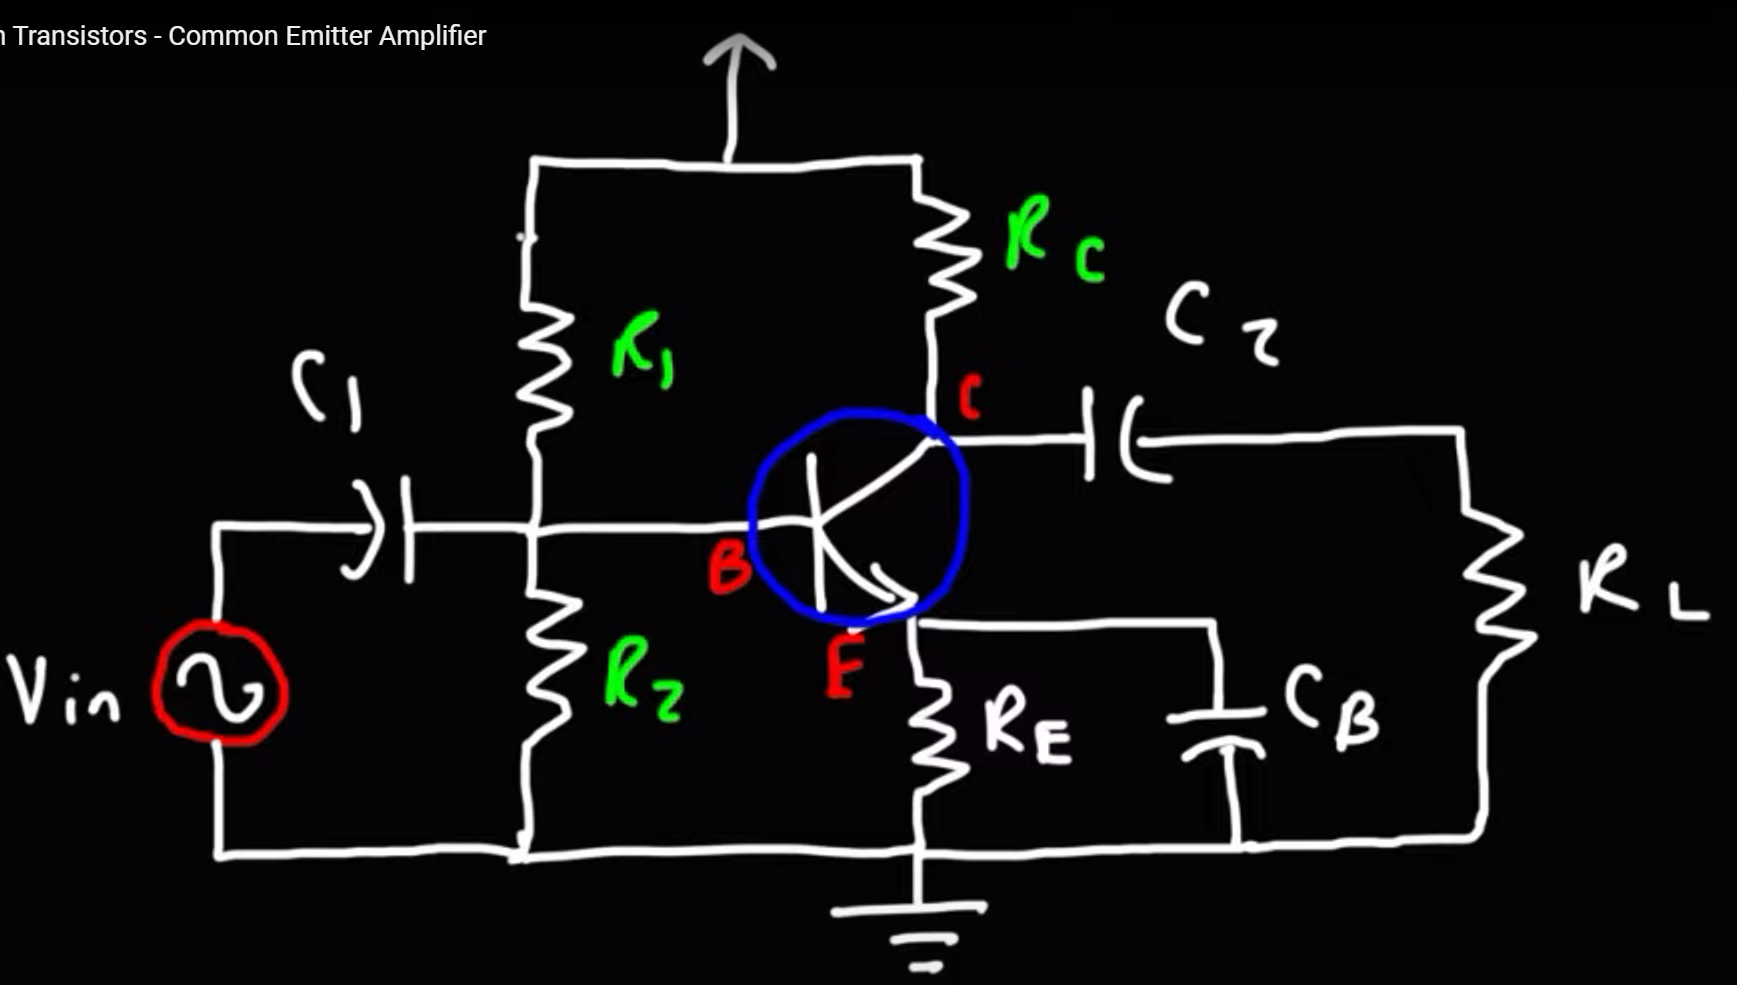 n Transistors - Common Emitter Amplifier
RC
C2
R1
C1
C
B
RL
E
R2
Vin
RE
CB